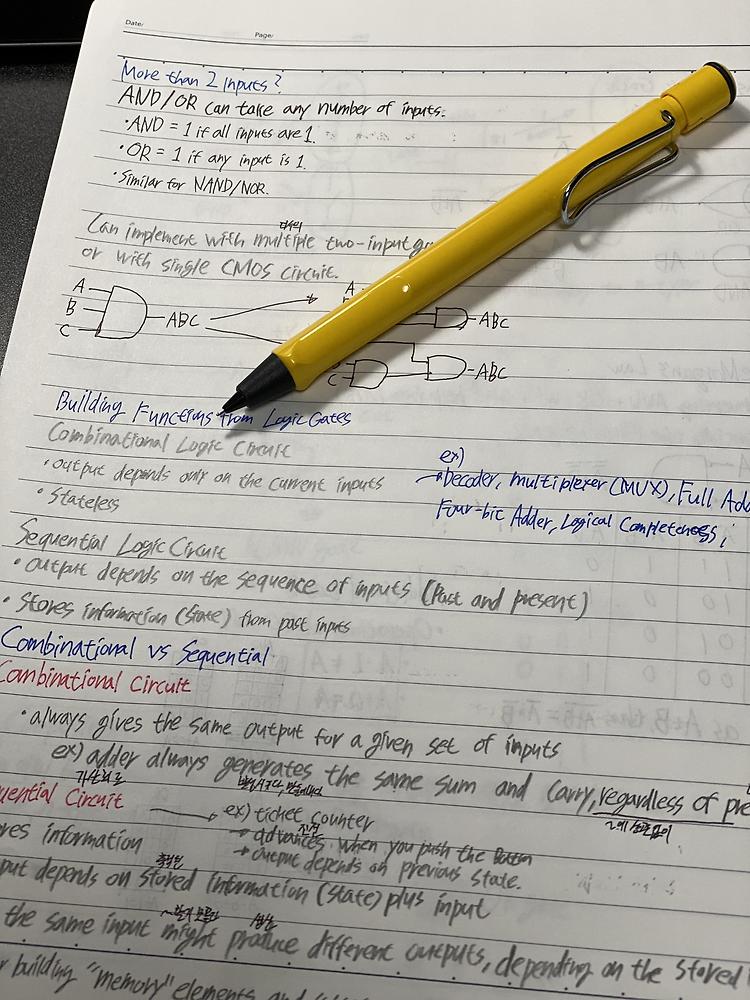 Date/
Page/
More than 2 Inputs?
AND/OR can take any number of inputs.
• AND = 1 if all inputs are 1.
• OR = 1 if any input is 1.
• Similar for NAND/NOR.
다수의
Can implement with multiple two-input
or with single CMOS circuit.
A
B
C
ABC
A
ABC
C
ABC
Building Functions from Logic Gates
Combinational Logic Circuit
• output depends only on the current inputs
• Stateless
ex)
→ Decoder, multiplexer (MUX), Full Add
Four-bit Adder, Logical Completeness,
Sequential Logic Circuit
• output depends on the sequence of inputs (Past and present)
• Stores information (State) from past inputs
Combinational vs Sequential
Combinational Circuit
• always gives the same output for a given set of inputs
ex) adder always generates the same sum and carry, regardless of pre
가산기로
uential Circuit
→ ex) ticket counter
ores information
→ advances when you push the Button
→ output depends on previous state.
put depends on stored information (state) plus input
the same input might produce different outputs, depending on the stored
r building "memory" elements and